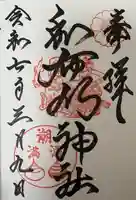 奉拝
和布刈神社
令和七年三月九日